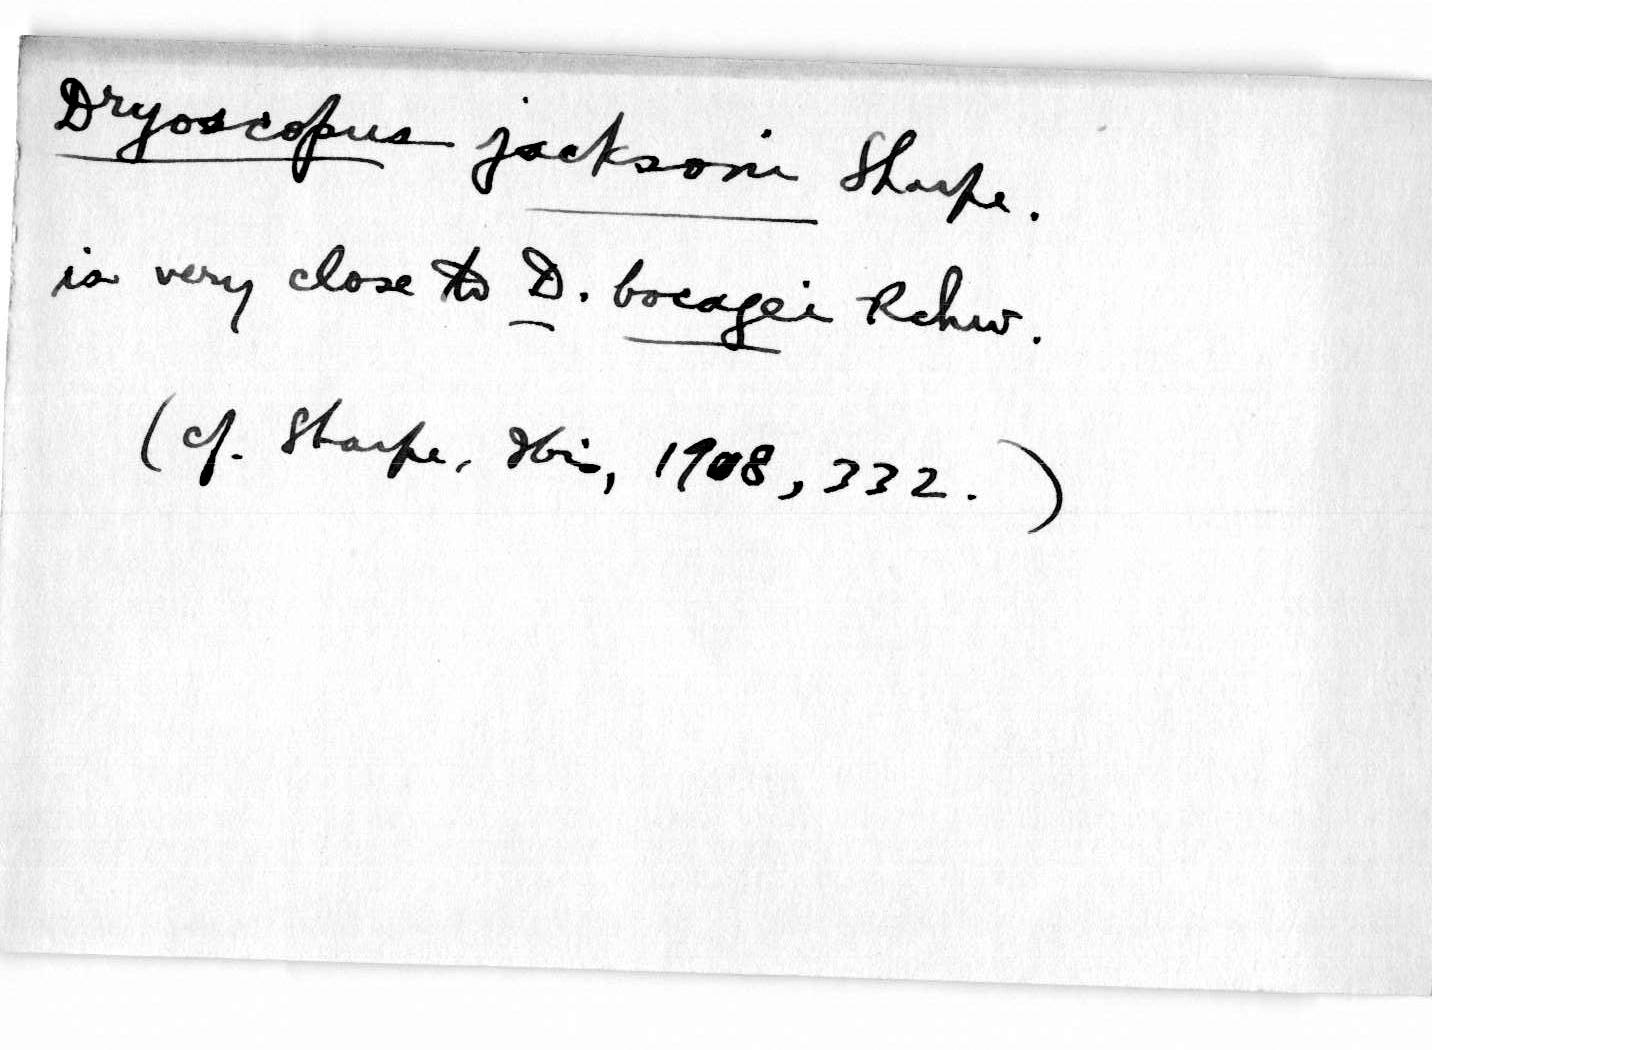 Dryoscopus jacksoni Sharpe.
is very close to D. bocagei Rchw.
(cf. Sharpe, Ibis, 1908, 332.)